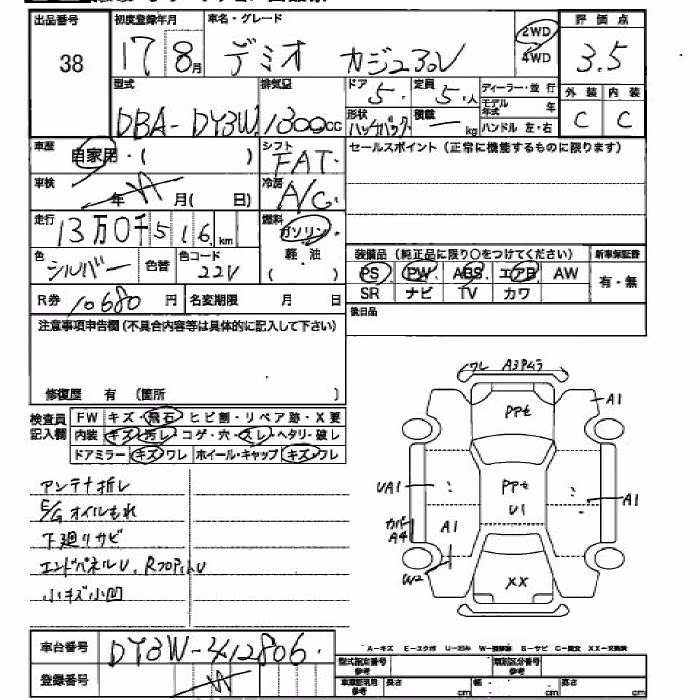 出品番号 初度登録年月 車名・グレード 評価点
38 17 8月 デミオ カジュアルV 2WD 4WD 3.5
型式 排気量 ドア 5. 定員 5.人 ディーラー・並行 外装 内装
DBA-DY3W 1300cc 形状 ハッチバック 積載 ー kg モデル年式 年 ハンドル 左・右 C C
車歴 自家用・( ) シフト FAT. セールスポイント(正常に機能するものに限ります)
車検 年 月( 日) 冷房 A/C.
走行 13万0千516km 燃料 ガソリン 軽・油 ( )
装備品(純正品に限り○をつけてください) 新車保証書
色 シルバー 色替 色コード 22V PS PW ABS エアB AW 有・無
R券 10680円 名変期限 月 日 SR ナビ TV カワ
注意事項申告欄(不具合内容等は具体的に記入して下さい) 後日品
修復歴 有 (箇所 )
検査員記入欄 FW キズ・飛石・ヒビ割・リペア跡・X要
内装 キズ・汚レ・コゲ・穴・スレ・ヘタリ・破レ
ドアミラー キズ・ワレ ホイール・キャップ キズ・ワレ
ワレ A3アムラ
PPセ A1
UA1 PPセ U1 A1
カバーA4 A1
W2 XX
アンテナ折レ
E/Gオイルもれ
下廻リサビ
エンドパネルU.
小キズ小凹
車台番号 DY3W-412806.
A-キズ E-エクボ U-凹み W-補修跡 S-サビ C-腐食 XX-交換済
登録番号 型式指定番号 参考 類別区分番号 参考
車庫証明用 参考 長さ cm 幅 cm 高さ cm